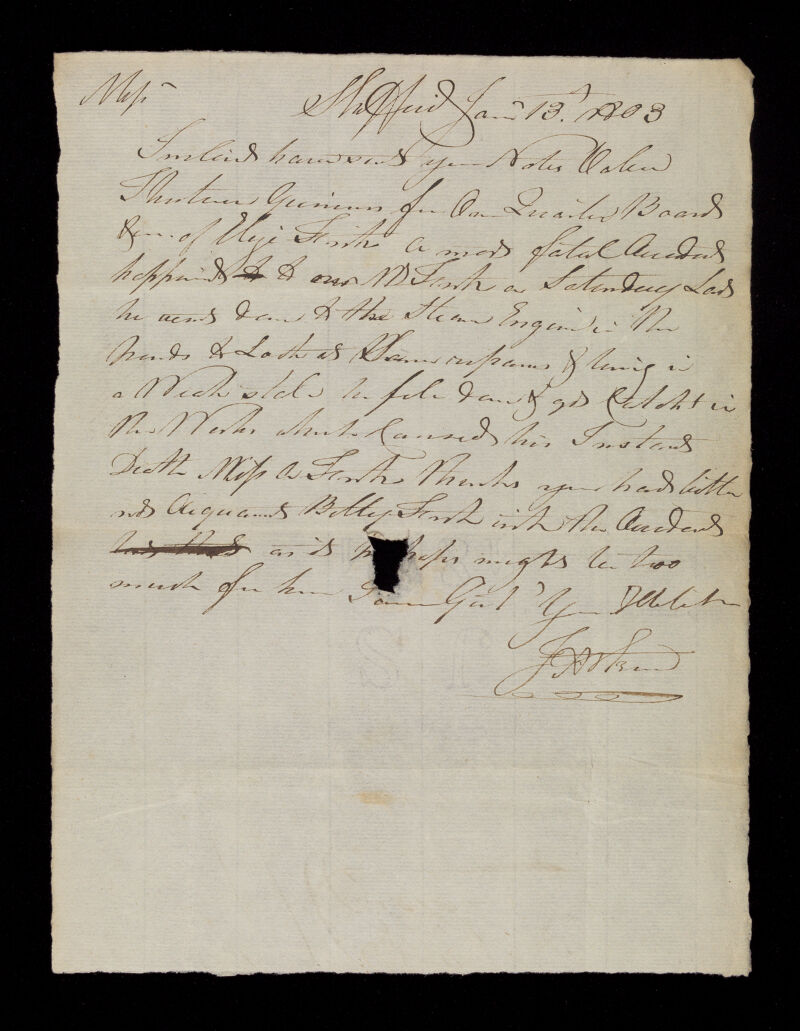 Miss Sheffield Jany 13th 1803
Inclosd have sent you Notes Value
Thirteen Guineas for One Quarter Board
&c of Miss Firth a most fatal Accident
happined to our Mr Firth on Saturday Last
he went down to the Steam Engine in the
to Look at Some repairs & being in
a Weak state he fell down & got Catcht in
the Works which Caused his Instant
Death Miss A Firth thinks you had better
not Acquaint Betsy Firth with the Accident
as it perhaps might be too
much for her I am Gent Your